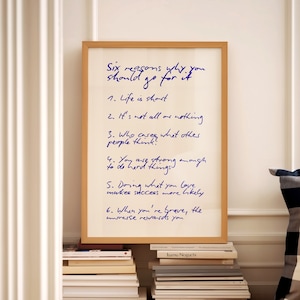 Six reasons why you
should go for it
1. Life is short
2. It's not all or nothing
3. Who cares what other
people think!
4. You are strong enough
to do hard things!
5. Doing what you love
makes success more likely
6. When you're brave, the
universe rewards you